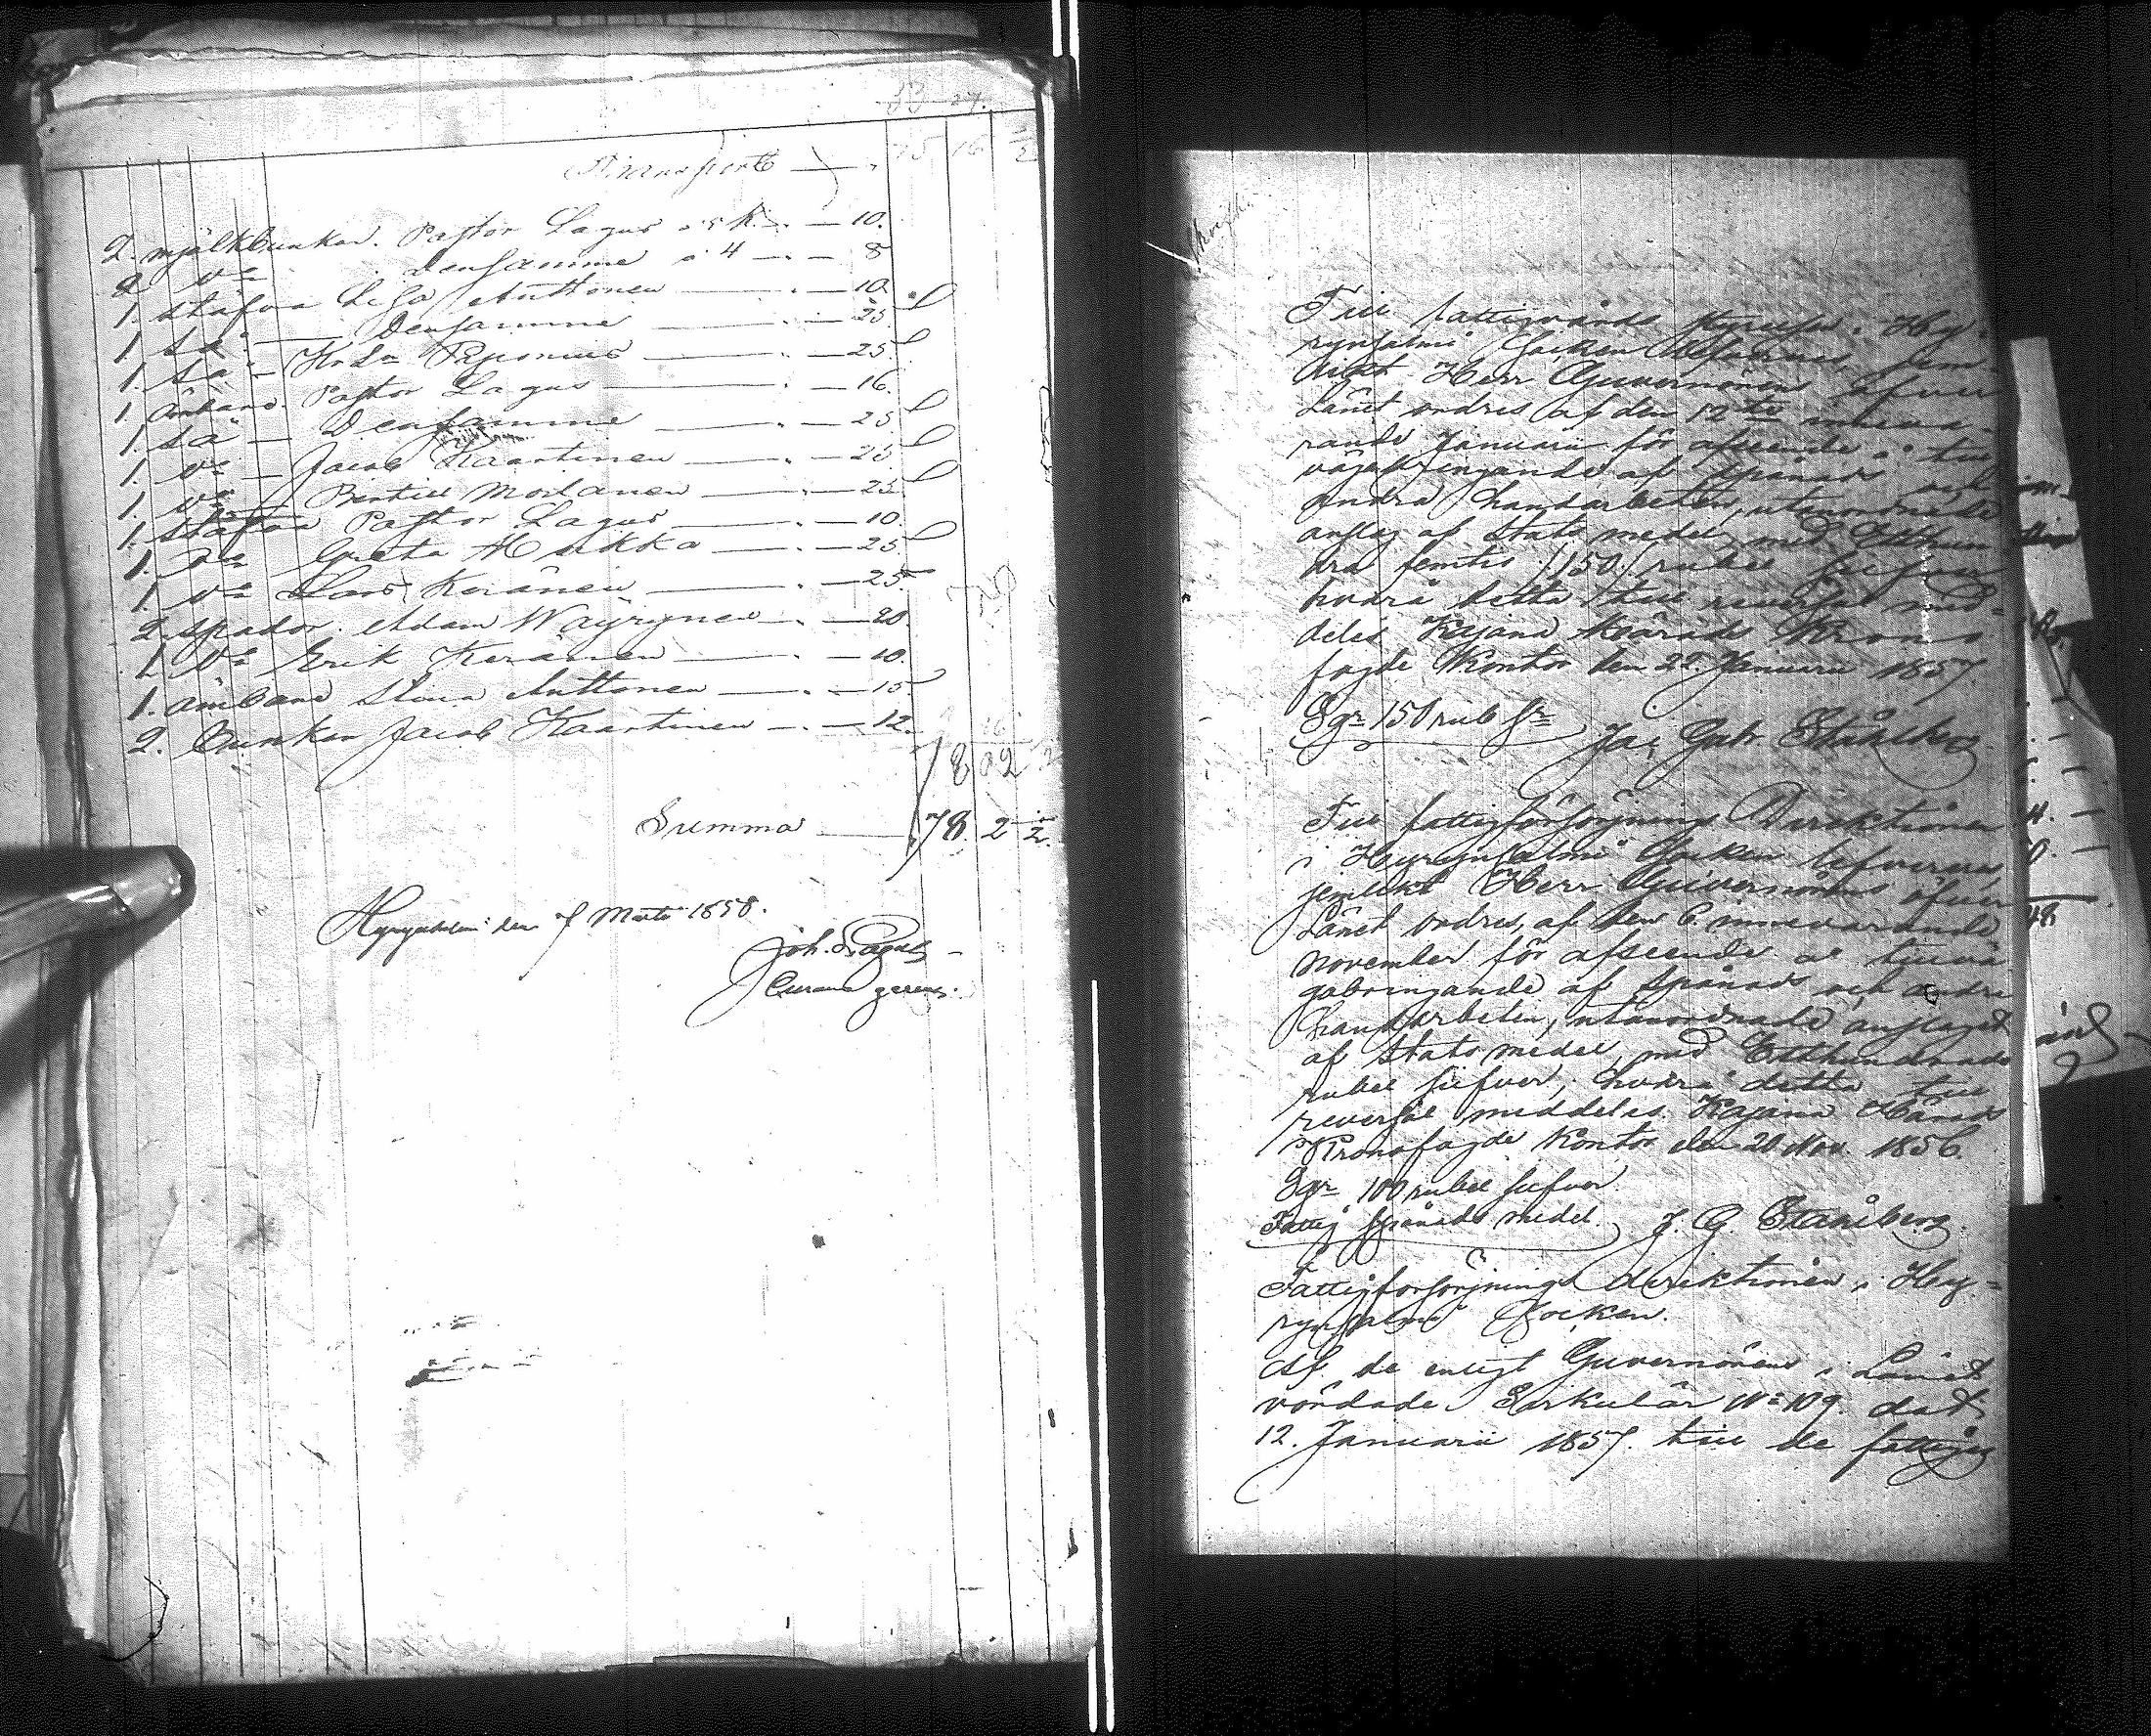 53 27.
Transport — 75 16 1/2
2. mjölkbunkar. Pastor Lagus a 5 k. — 10.
2 do densamme a 4 — 8
1. stäfva Lisa Anttonen — 10.
1 så — Densamme — 25
1. så — Paponius — 25
1. ämbare. Pastor Lagus — 16.
1. så — Densamme — 25
1. do — Jacob Kaartinen — 25
1. do — Bertill Moilanen — 25
1. stäfva Pastor Lagus — 10.
1. do Greta Mikka — 25
1. do Lars Keränen — 25
2. spador. Adam Wäyrynen — 20
1. do Erik Keränen — 10.
1. ämbare Stina Anttonen — 15
2. Bunkar Jacob Kaartinen — 12.
Summa — 78. 2 1/2.
Hyrynsalmi den Marti 1858.
Joh. Lagus
Curam gerens.
Till fattigvårds styrelsen i Hy-
rynsalmi Socken lefvereras, jem-
likt Herr Guvernörens öfver
Länet ordres af den 12te inneva-
rande Januarii för afseende å till
vägabringande af spånads och
andra handarbeten, utanordnade
anslag af Stats medel med Etthun
dra femtio /150/ rubel silfver
hvarå detta till reversal med-
delas Kajana Härads Krono-
fogde Kontor den 22. Januarii 1857.
Sgr 150 rub Sr
Jac. Gabr. Ståhlberg
Till fattigförsörjnings Direktionen
i Hyrynsalmi Socken lefvereras,
jemlikt Herr Guvernörens öfver
Länet ordres, af den 6. innevarande
November för afseende å tillvä
gabringande af Spånads och andra
handarbeten, utanordnade anslaget
af Stats medel, med Etthundrade
rubel silfver, hvarå detta till
reversal meddelas. Kajana Härads
Kronofogde Kontor den 20 Nov. 1856.
Sgr 100 rubel silfver
Fattig spånads medel. J. G. Ståhlberg.
Fattigförsörjnings direktionen i Hy-
rynsalmi Socken.
Af de enligt Guvernörens i Länet
vördade Sirkulär No 109. dat.
12. Januarii 1857. till de fattiges